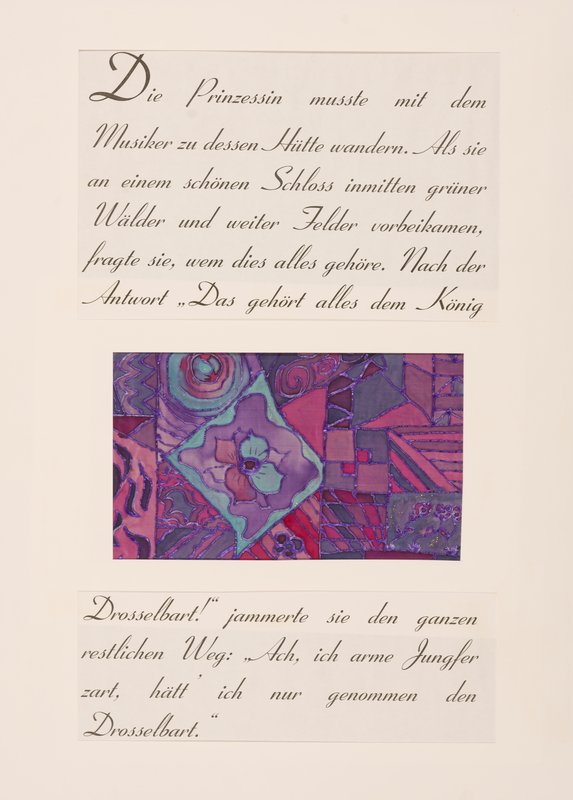 Die Prinzessin musste mit dem
Musiker zu dessen Hütte wandern. Als sie
an einem schönen Schloss inmitten grüner
Wälder und weiter Felder vorbeikamen,
fragte sie, wem dies alles gehöre. Nach der
Antwort „Das gehört alles dem König
Drosselbart!“ jammerte sie den ganzen
restlichen Weg: „Ach, ich arme Jungfer
zart, hätt’ ich nur genommen den
Drosselbart.“